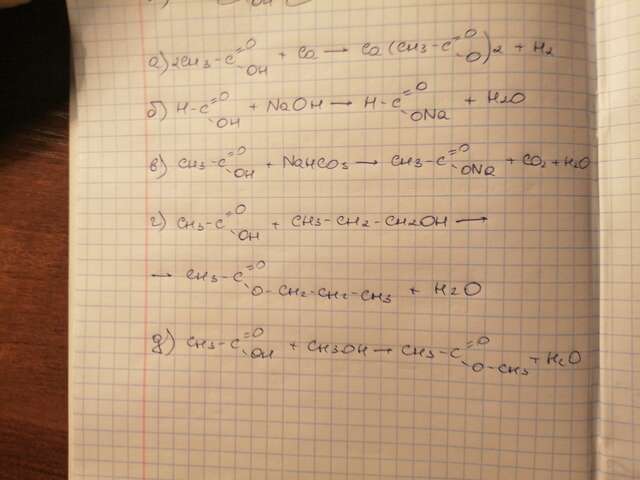 а) 2CH3-C=O OH + Ca → Ca(CH3-C=O O)2 + H2
б) H-C=O OH + NaOH → H-C=O ONa + H2O
в) CH3-C=O OH + NaHCO3 → CH3-C=O ONa + CO2 + H2O
г) CH3-C=O OH + CH3-CH2-CH2OH →
→ CH3-C=O O-CH2-CH2-CH3 + H2O
д) CH3-C=O OH + CH3OH → CH3-C=O O-CH3 + H2O